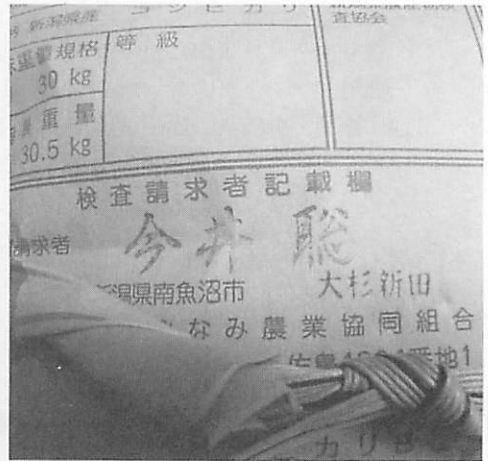 新潟県産 コシヒカリ
査協会
重量規格 等級
30 kg
重量
30.5 kg
検査請求者記載欄
請求者 今井 聡
新潟県南魚沼市 大杉新田
みなみ農業協同組合
番地1
カリ